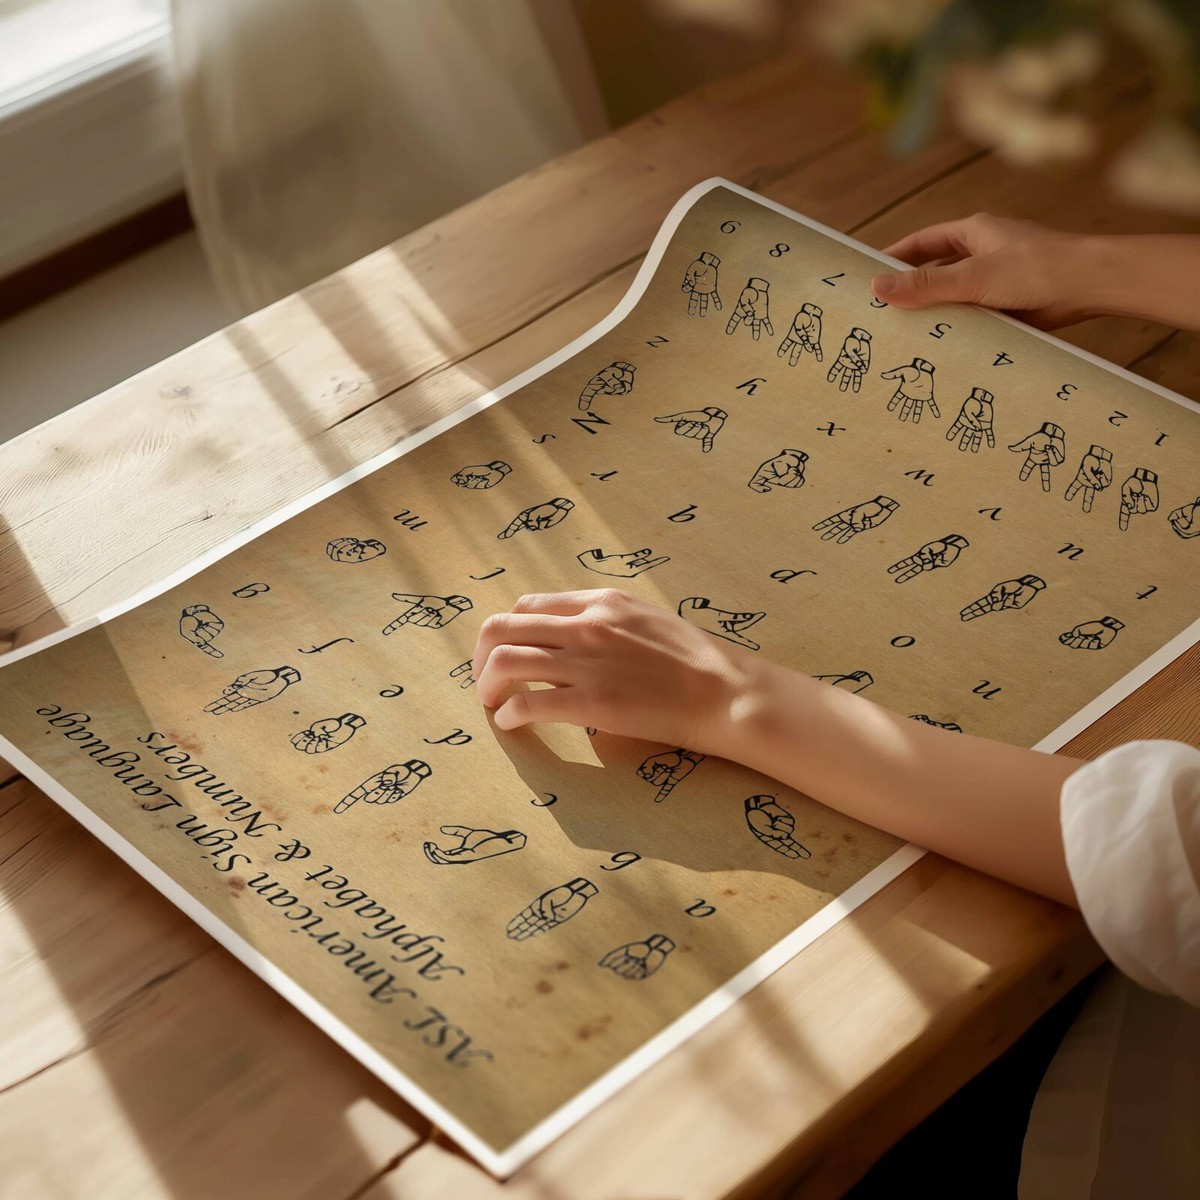 ASL American Sign Language
Alphabet & Numbers
a b c d e f g
l m
n o p q r s
t u v w x y z
Z
1 2 3 4 5 6 7 8 9